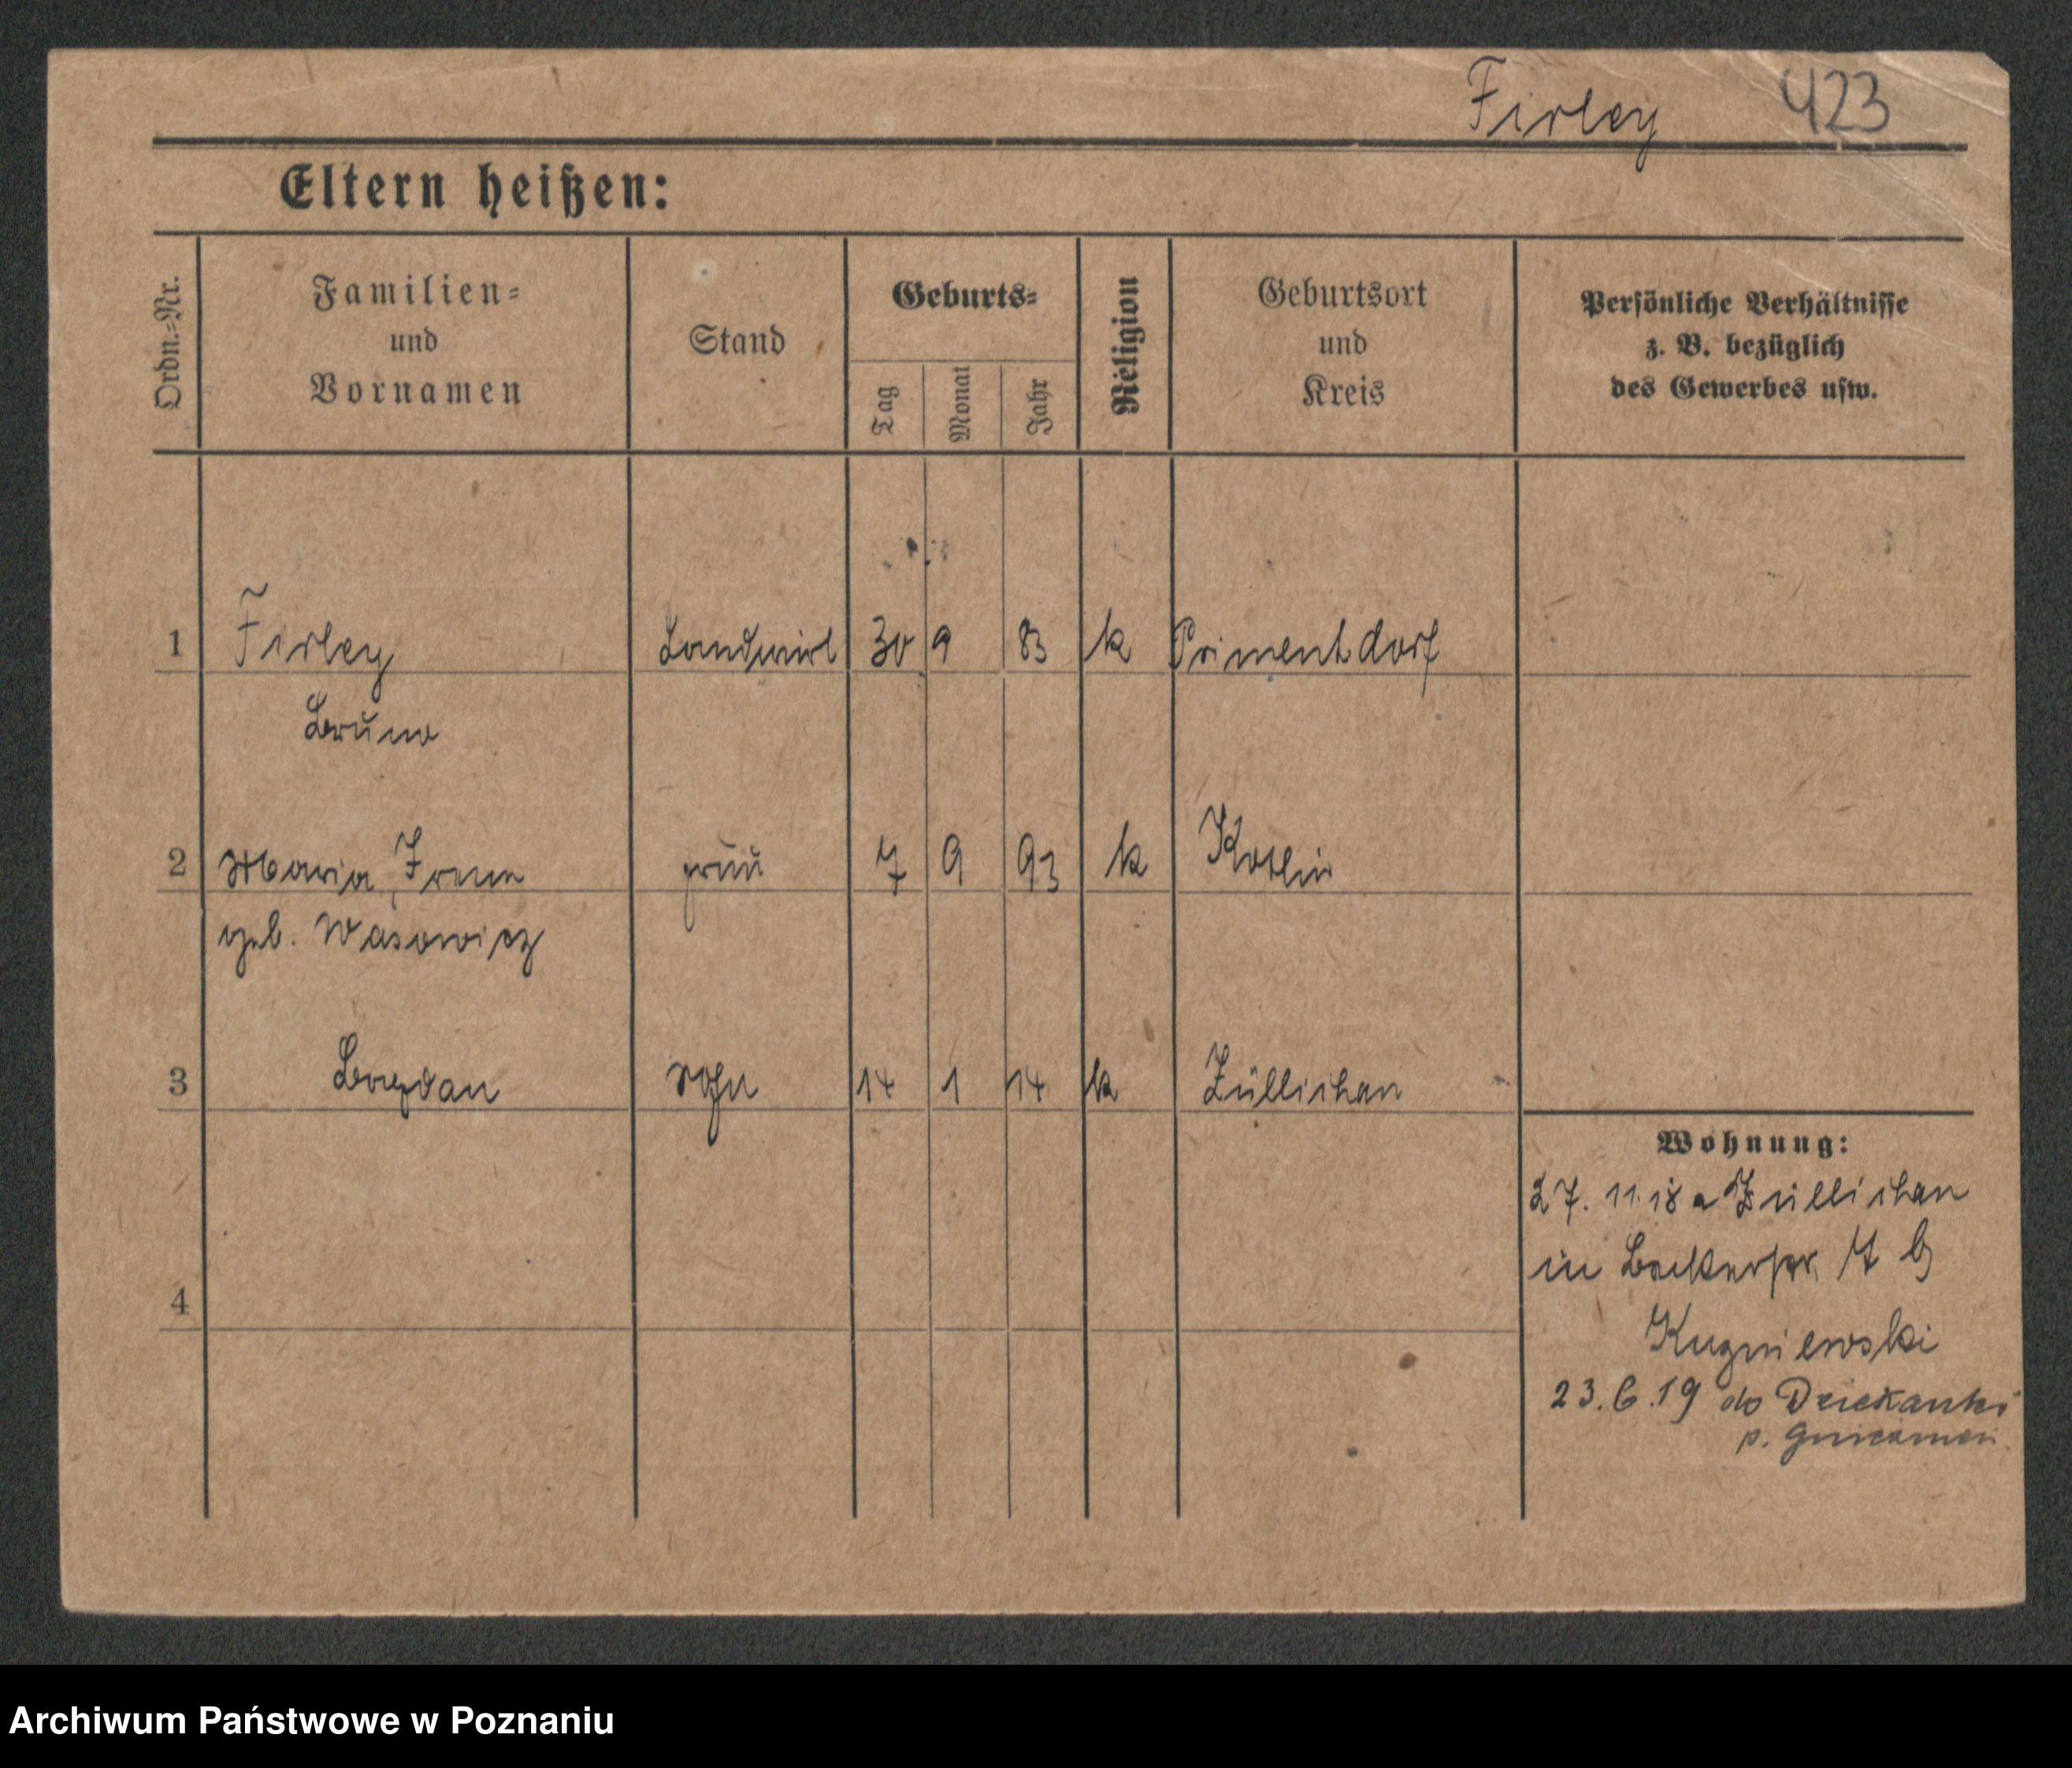 Firley 423
Eltern heißen:
Ordn.-Nr.
Familien-
und
Vornamen
Stand
Geburts-
Tag
Monat
Jahr
Religion
Geburtsort
und
Kreis
Persönliche Verhältnisse
z. B. bezüglich
des Gewerbes usw.
1 Firley Landwirt 30 9 83 k Primentdorf
Bruno
2 Maria, 7 9 93 k Kotlin
geb. Wasowicz
3 Bogdan Sohn 14 1 14 k Züllichau
4
Wohnung:
27. 11. 18 a Züllichau
in Bäckerstr. 17 b
Kuzniewski
23.6.19 do Dziekanki
p.
Archiwum Państwowe w Poznaniu